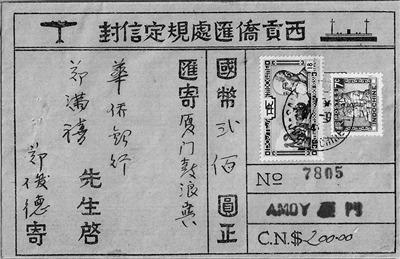 西貢僑匯處規定信封
國幣弍佰圓正
匯寄厦门鼓浪嶼
華侨銀行
鄭滿禧 先生啓
鄭俊德 寄
INDOCHINE
INDOCHINE
No 7805
AMOY 廈門
C.N.$ 200.00